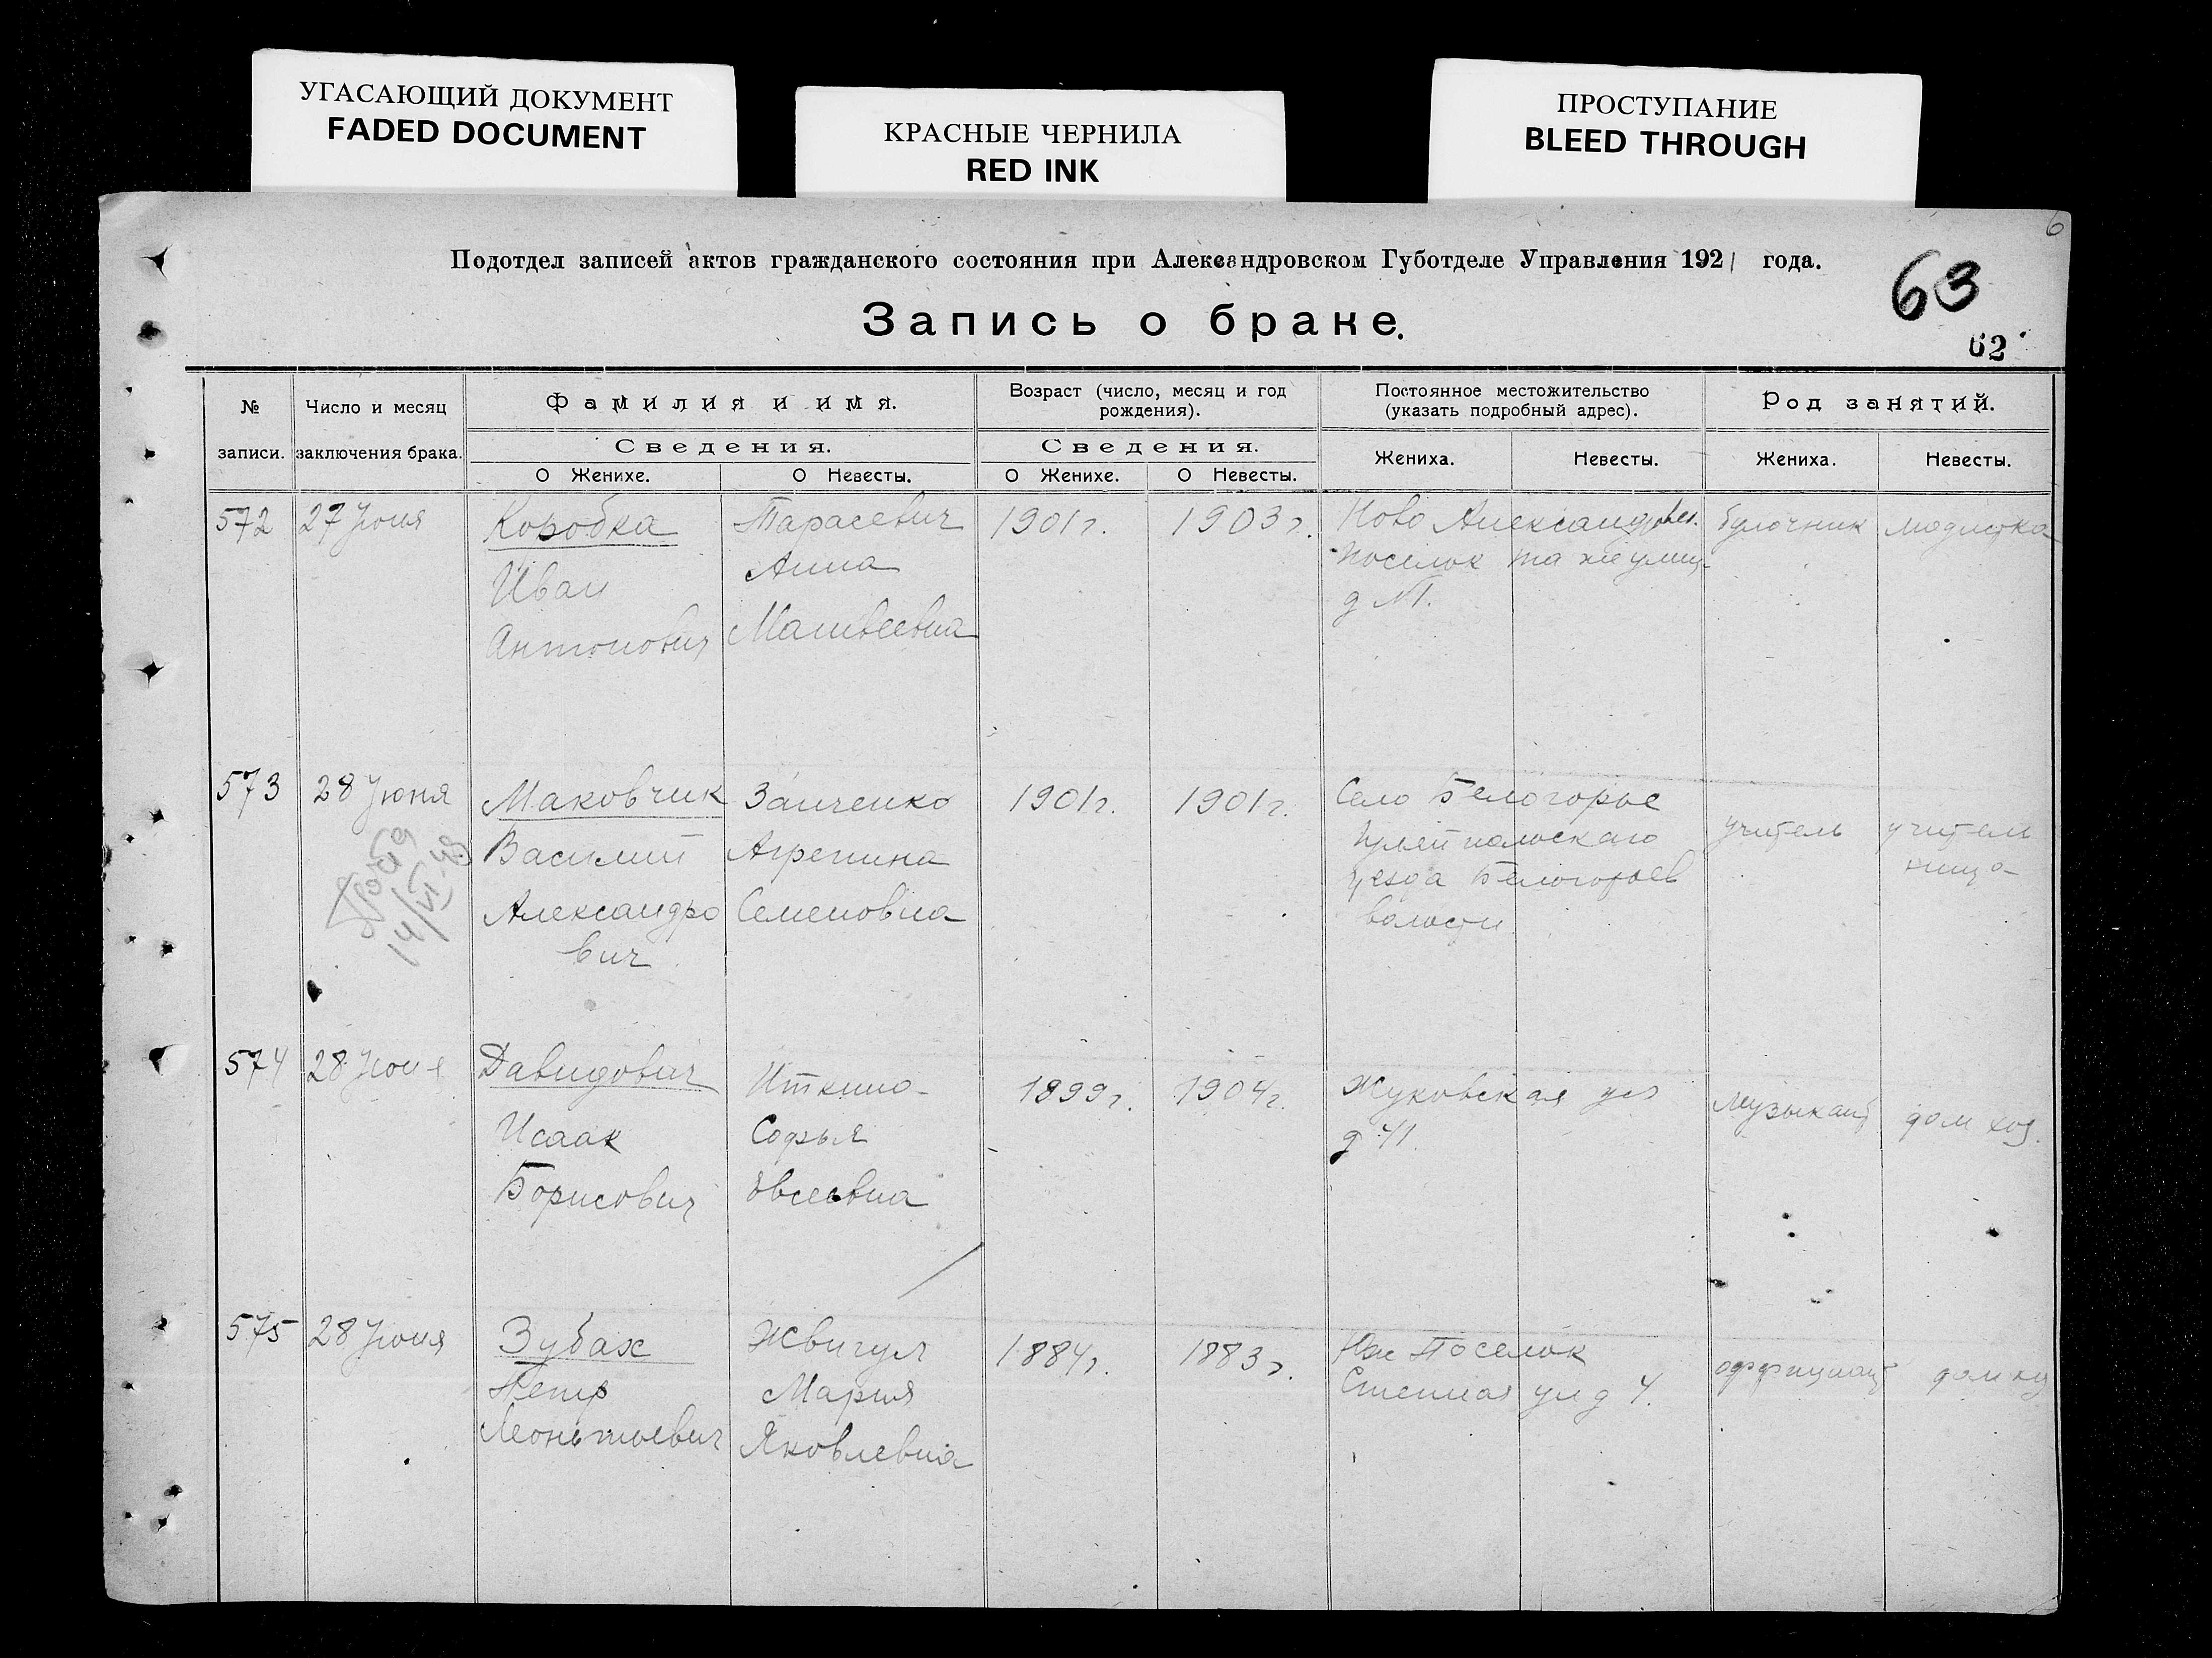 УГАСАЮЩИЙ ДОКУМЕНТ
FADED DOCUMENT
КРАСНЫЕ ЧЕРНИЛА
RED INK
ПРОСТУПАНИЕ
BLEED THROUGH
6
Подотдел записей актов гражданского состояния при Александровском Губотделе Управления 1921 года.
63
Запись о браке.
62
№ записи.
Число и месяц заключения брака.
Фамилия и имя.
Сведения.
О Женихе.
О Невесты.
Возраст (число, месяц и год рождения).
Сведения.
О Женихе.
О Невесты.
Постоянное местожительство (указать подробный адрес).
Жениха.
Невесты.
Род занятий.
Жениха.
Невесты.
572
27 Июня
Коробка
Иван
Антонович
Тарасевич
Анна
Матвеевна
1901 г.
1903 г.
Ново Александровс.
поселок та же улиц.
д №1.
булочник
модистка
573
28 Июня
14/VI-49
Маковчик
Василий
Александро
вич
Заиченко
Агрепина
Семеновна
1901 г.
1901 г.
Село Белогорье
Гуляйпольскаго
уезда Белогорьев
волости
учитель
учитель
ница
574
28 Июня
Давидович
Исаак
Борисович
Иткина
Софья
Евсеевна
1899 г.
1904 г.
Жуковская ул
д 41.
музыкант
дом хоз.
575
28 Июня
Зубах
Петр
Леонтьевич
Жвигул
Мария
Яковлевна
1884 г.
1883 г.
Юж Поселок
Степная ул д 4.
оффициант